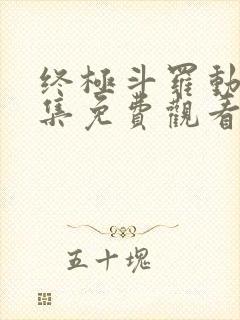 终極斗羅動
集免費觀看
五十塊